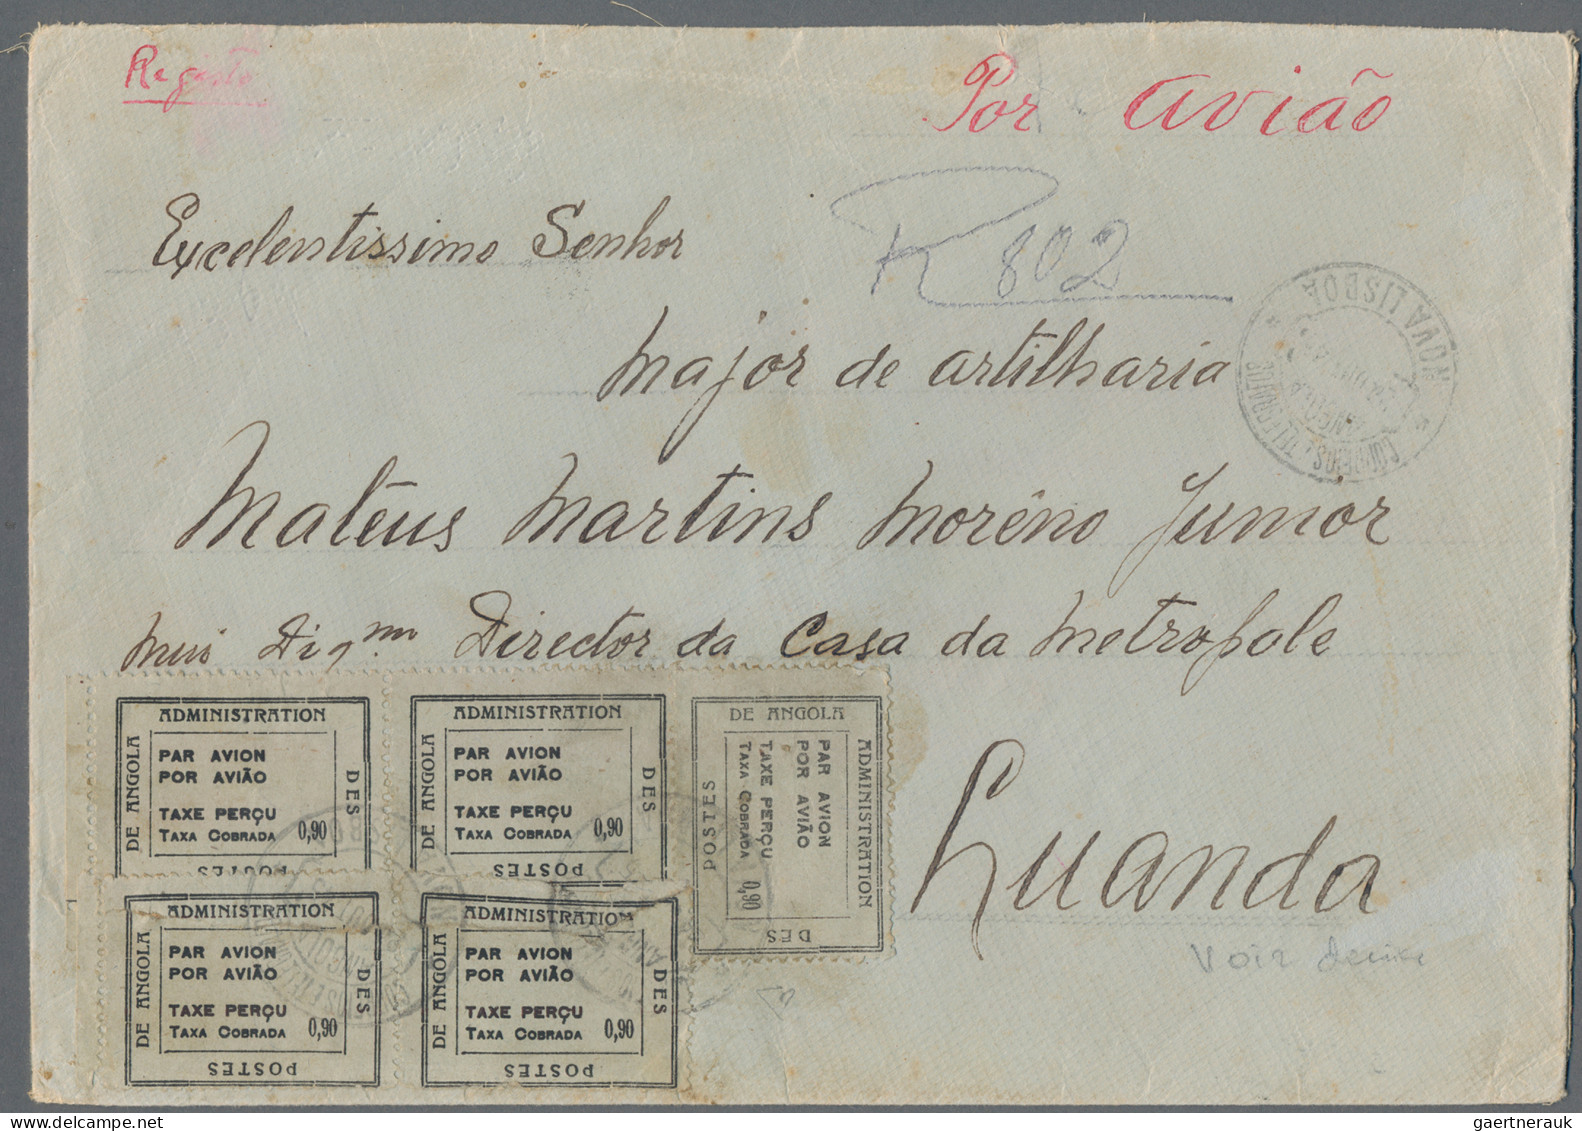 Registo
Por avião
R 802
Excelentissimo Senhor
Major de artilharia
Matêus Martins Morêno Junior
Mui Dig.mo Director da Casa da Metropole
Luanda
Voir
NOVA LISBOA
CORREIOS E TELEGRAFOS
ANGOLA
ADMINISTRATION
DES
POSTES
DE ANGOLA
PAR AVION
POR AVIÃO
TAXE PERÇU
TAXA COBRADA 0,90
ADMINISTRATION
DES
POSTES
DE ANGOLA
PAR AVION
POR AVIÃO
TAXE PERÇU
TAXA COBRADA 0,90
ADMINISTRATION
DES
POSTES
DE ANGOLA
PAR AVION
POR AVIÃO
TAXE PERÇU
TAXA COBRADA 0,90
ADMINISTRATION
DES
POSTES
DE ANGOLA
PAR AVION
POR AVIÃO
TAXE PERÇU
TAXA COBRADA 0,90
ADMINISTRATION
DES
POSTES
DE ANGOLA
PAR AVION
POR AVIÃO
TAXE PERÇU
TAXA COBRADA 0,90
gaertnerauk